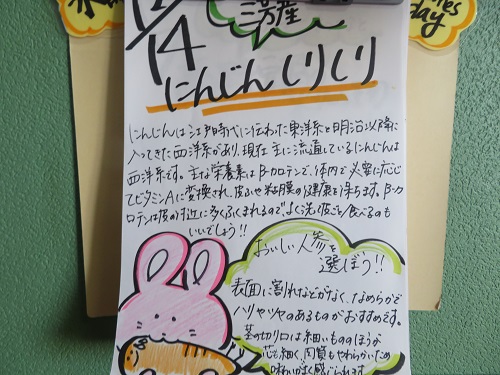 12/14
三芳産
にんじんしりしり
にんじんは江戸時代に伝わった東洋系と明治以降に
入ってきた西洋系があり、現在主に流通しているにんじんは
西洋系です。主な栄養素はβ-カロテンで、体内で必要に応じ
てビタミンAに変換され、皮ふや粘膜の健康を保ちます。β-カ
ロテンは皮の付近に多くふくまれるので、よく洗い皮ごと食べるのも
いいでしょう!!
おいしい人参を
選ぼう!!
表面に割れなどがなく、なめらかで
ハリやツヤのあるものがおすすめです。
茎の切り口は細いもののほうが
芯も細く、肉質もやわらかいため
day